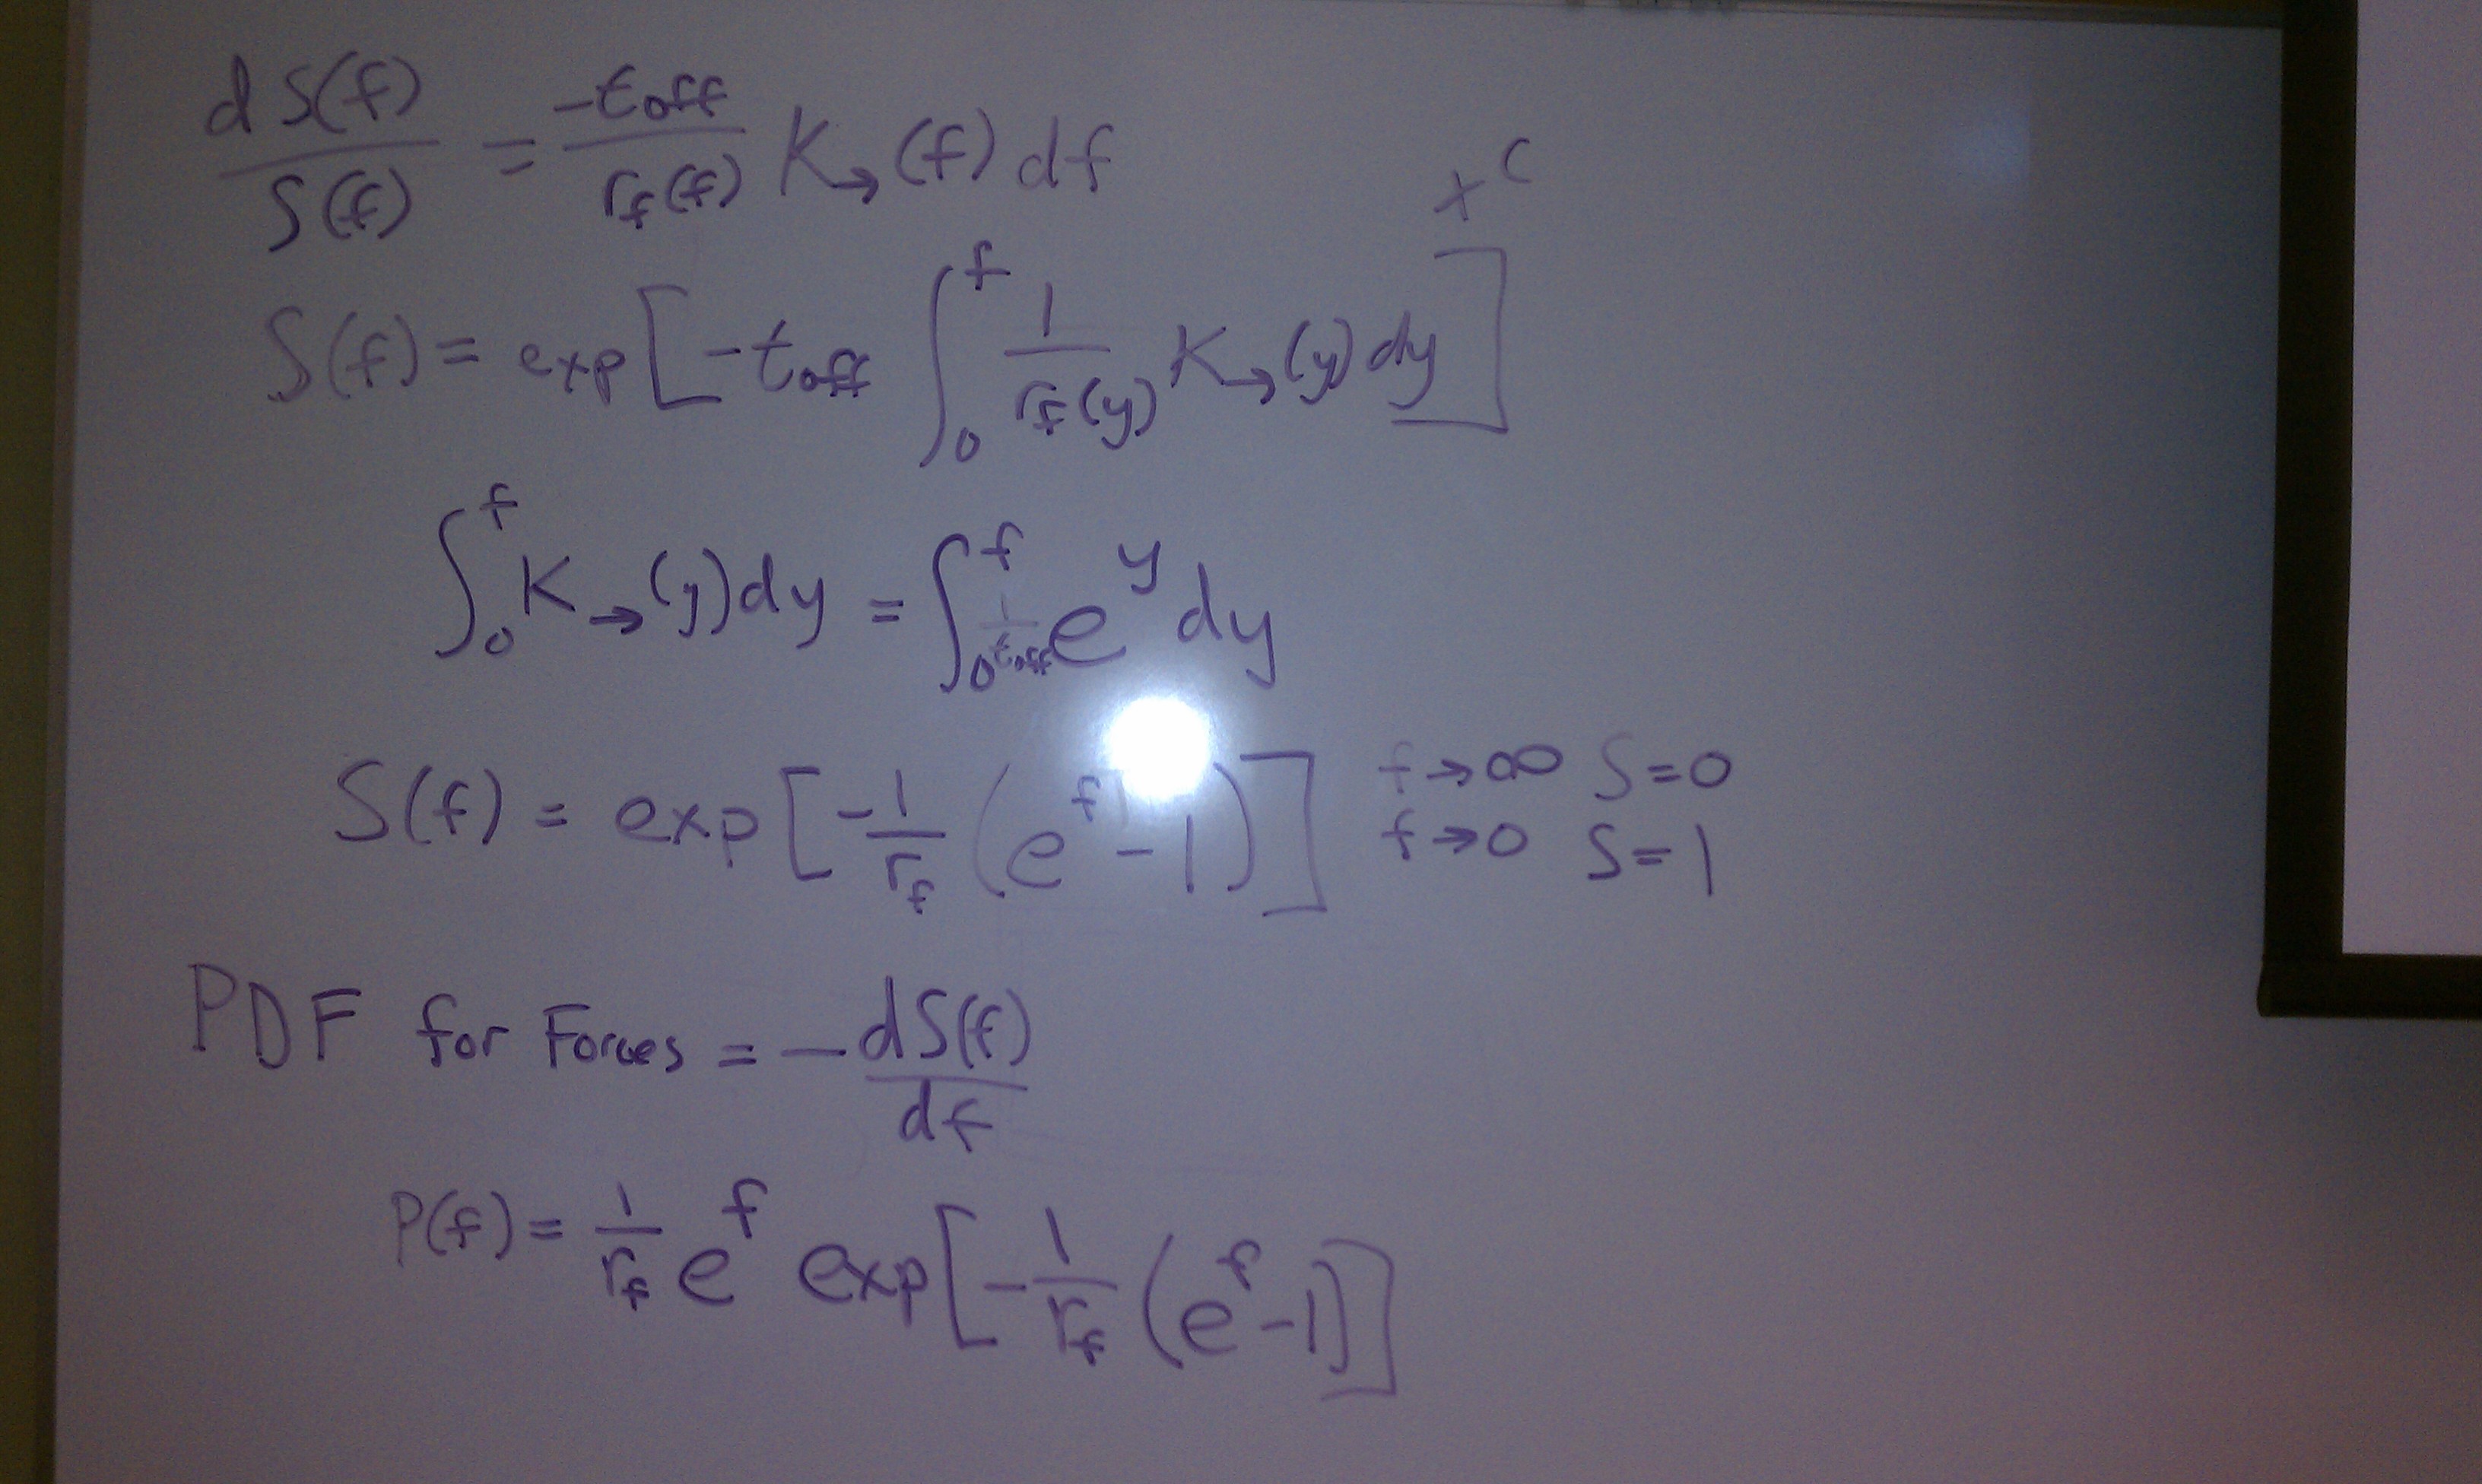 dS(f)/S(f) = -t_off/r_f(f) K→(f) df
x^c
S(f) = exp[-t_off ∫_0^f 1/r_f(y) K→(y) dy]
∫_0^f K→(y) dy = ∫_0^f 1/t_off e^y dy
S(f) = exp[-1/r_f (e^f - 1)] f→∞ S=0
f→0 S=1
PDF for Forces = -dS(f)/df
P(f) = 1/r_f e^f exp[-1/r_f (e^f - 1)]